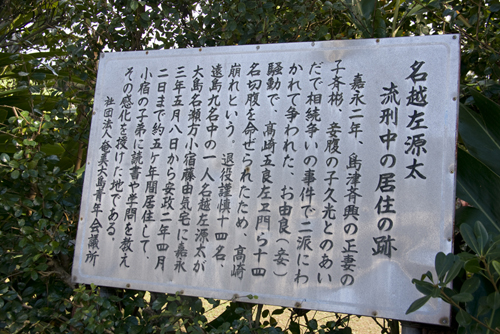 名越左源太
流刑中の居住の跡
嘉永二年、島津斉興の正妻の
子斉彬、妾腹の子久光とのあい
だで相続争いの事件で二派にわ
かれて争われた、お由良(安)
騒動で、高崎五良左ヱ門ら十四
名切腹を命ぜられたため、高崎
崩れという、退役謹慎十四名、
遠島九名中の一人名越左源太が
大島名瀬方小宿藤由気宅に嘉永
三年五月八日から安政二年四月
二日まで約五ヶ年間居住して、
小宿の子弟に読書や学問を教え
その感化を授けた地である。
社団法人奄美大島青年会議所